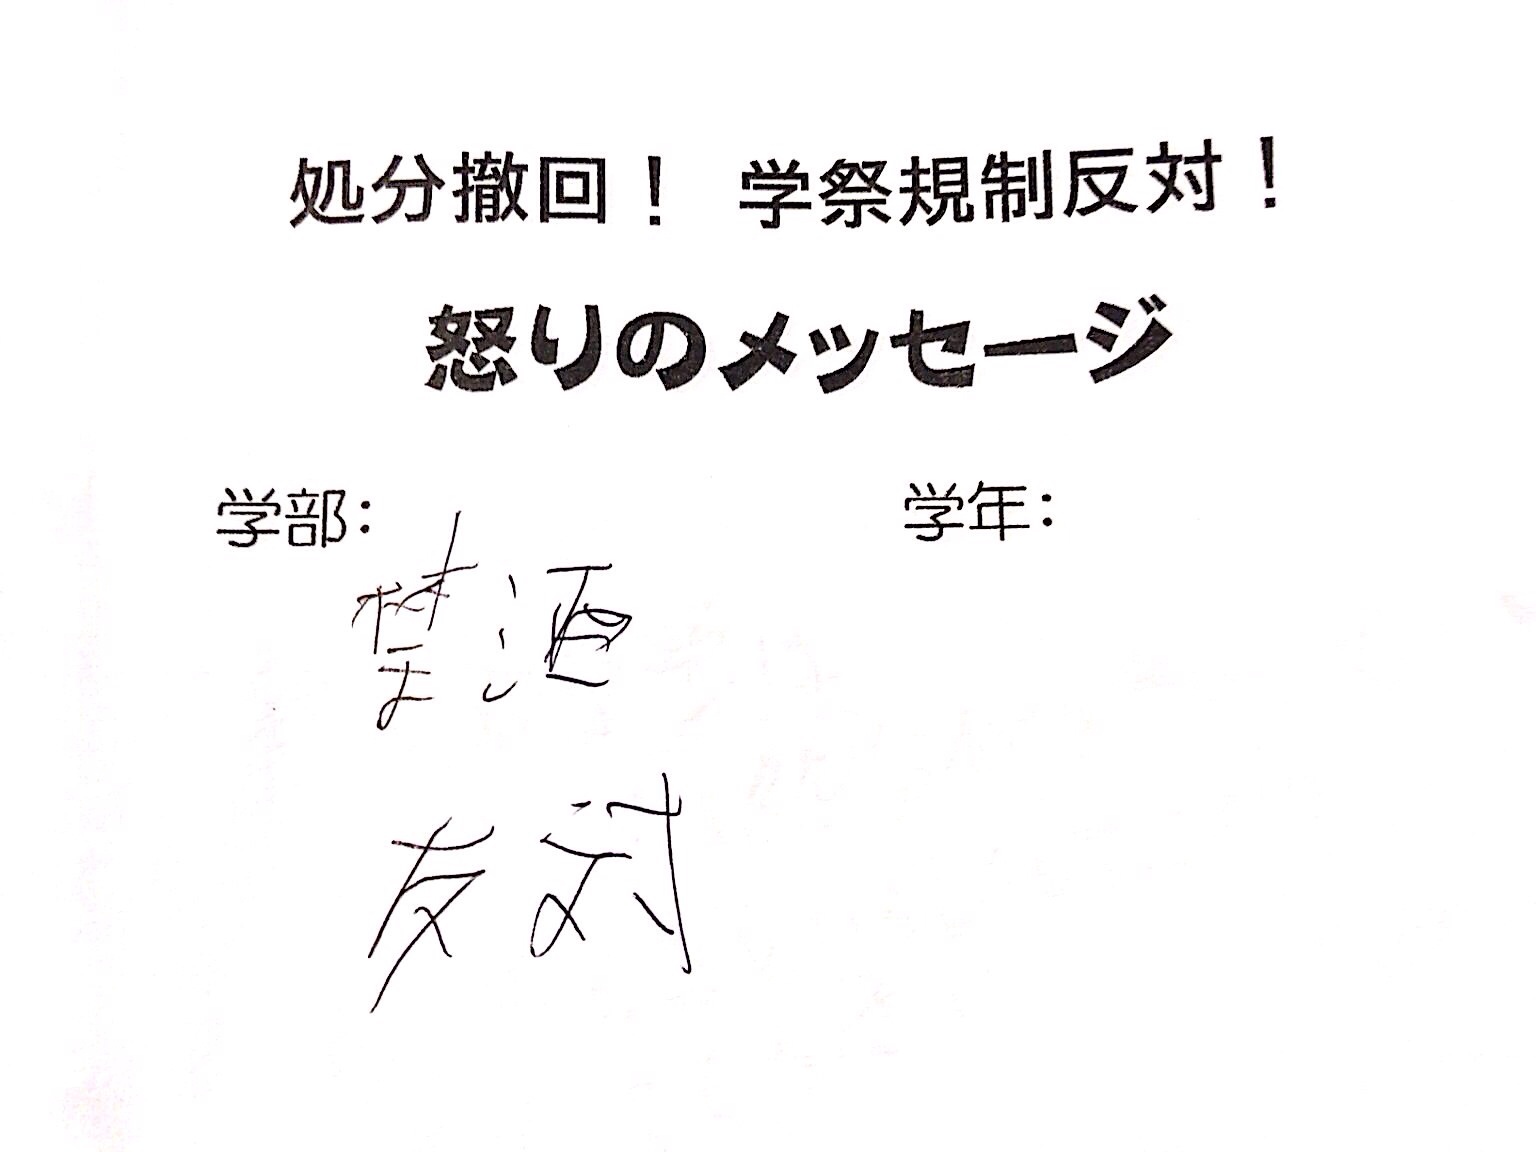 処分撤回！ 学祭規制反対！
怒りのメッセージ
学部： 学年：
禁酒
反対